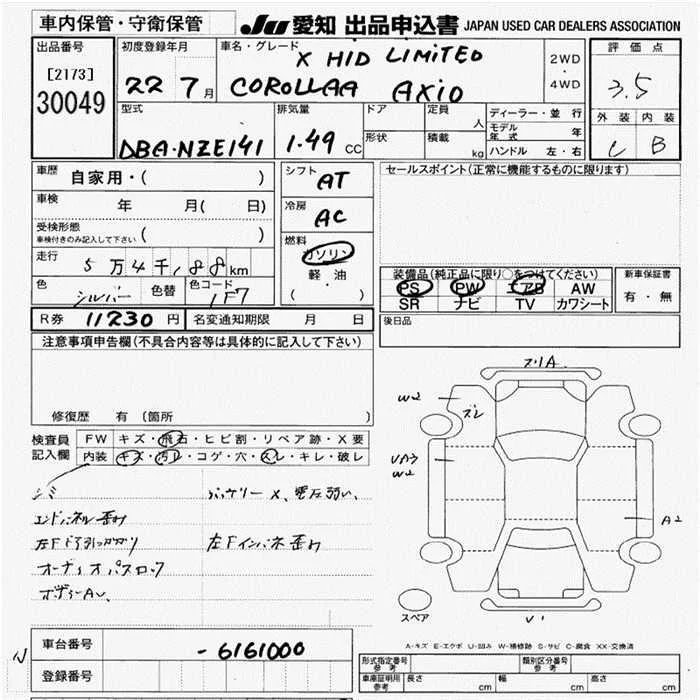 車内保管・守衛保管 JU 愛知 出品申込書 JAPAN USED CAR DEALERS ASSOCIATION
出品番号 初度登録年月 車名・グレード 評価点
[2173] X HID LIMITED 2WD
30049 22 7月 COROLLAA AXIO ・ 4WD 3.5
型式 排気量 ドア 定員 人 ディーラー・並 行 外装 内装
DBA-NZE141 1.49 CC 形状 積載 kg モデル年式 年 B
ハンドル 左・右
車歴 自家用・( ) シフト AT セールスポイント(正常に機能するものに限ります)
車検 年 月( 日) 冷房 AC
受検形態 ( )
車検付きのみ記入して下さい
走行 5万4千188km 燃料 ガソリン
軽油
( ・ )
装備品(純正品に限り○をつけてください) 新車保証書
PS PW エアB AW 有・無
SR ナビ TV カワシート
色 シルバー 色替 色コード 1F7
R券 11230円 名変通知期限 月 日 後日品
注意事項申告欄(不具合内容等は具体的に記入して下さい)
修復歴 有 (箇所 )
検査員記入欄 FW キズ・飛石・ヒビ割・リペア跡・X要
内装 キズ・汚レ・コゲ・穴・スレ・キレ・破レ
シミ バッテリーX、電圧弱い、
エンドパネル歪み
左Fインパネ歪み
オーディオパスロック
スリA
W2
ズレ
UA3
W2
A2
スペア
U1
車台番号 -6161000
登録番号
N
A-キズ E-エクボ U-凹み W-補修跡 S-サビ C-腐食 XX-交換済
形式指定番号 参考 類別区分番号 参考
車庫証明用 参考 長さ cm 幅 cm 高さ cm